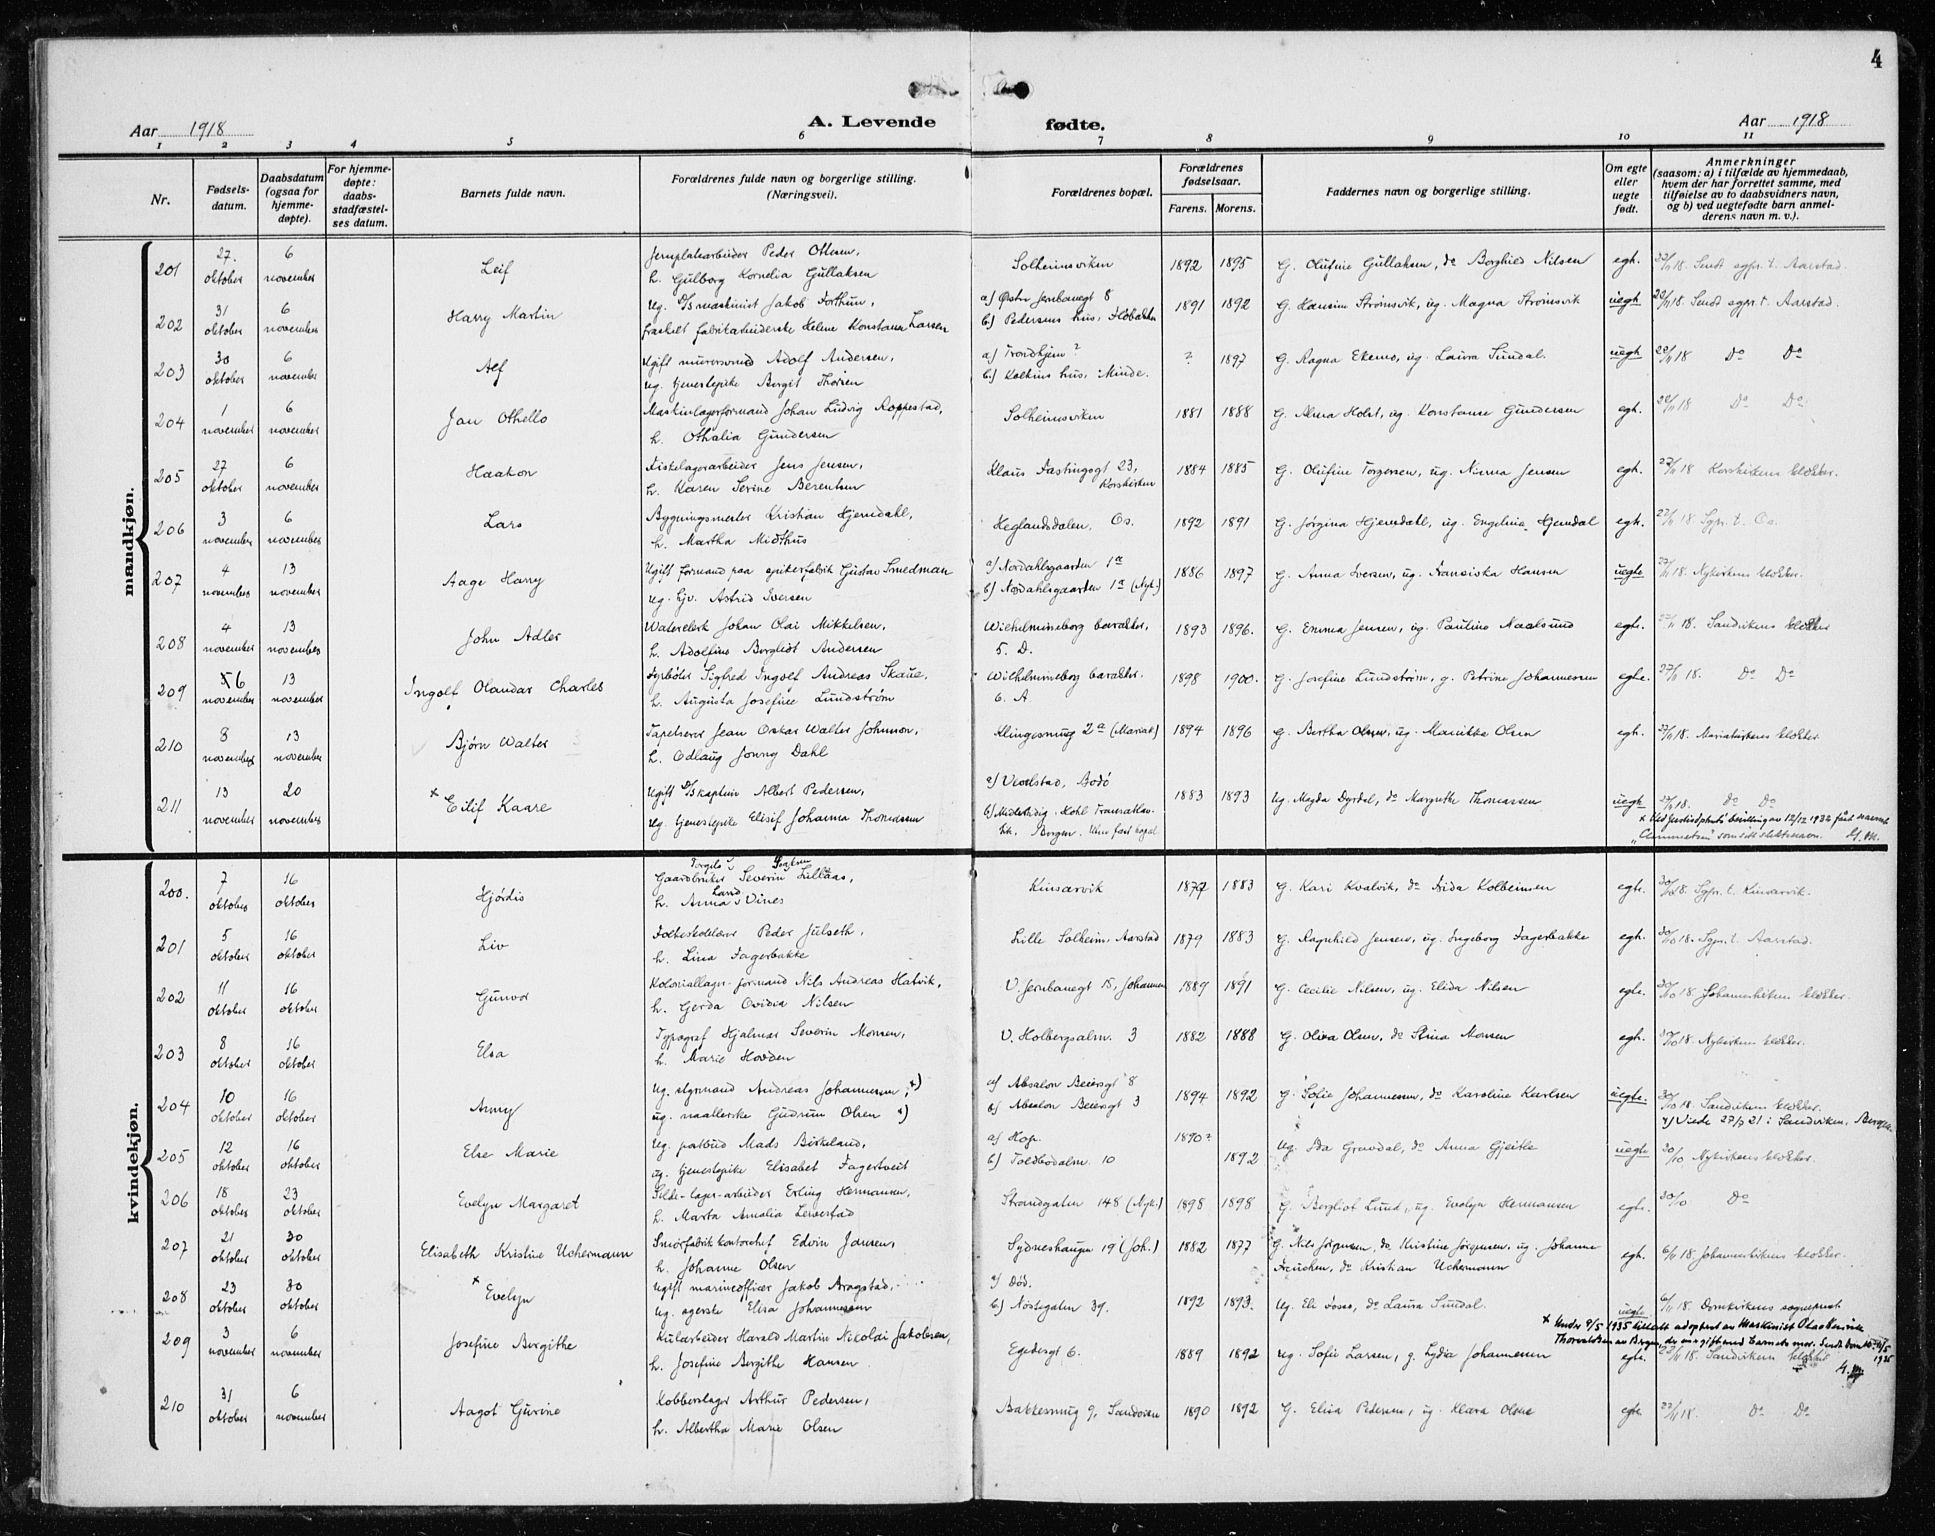 4
Aar 1918
A. Levende fødte.
Aar 1918
1 2 3 4 5 6 7 8 9 10 11
Nr.
Fødsels-
datum.
Daabsdatum
(ogsaa for
hjemme-
døpte).
For hjemme-
døpte:
daabs-
stadfæstel-
ses datum.
Barnets fulde navn.
Forældrenes fulde navn og borgerlige stilling.
(Næringsvei).
Forældrenes bopæl.
Forældrenes
fødselsaar.
Farens. Morens.
Faddernes navn og borgerlige stilling.
Om egte
eller
uegte
født.
Anmerkninger
(saasom: a) i tilfælde av hjemmedaab,
hvem der har forrettet samme, med
tilføielse av to daabsvidners navn,
og b) ved uegtefødte barn anmel-
derens navn m. v.).
mandkjøn.
201 27. oktober 6 november Leif Jernplatearbeider Peder Ottesen, Solheimsviken 1892 1895 G. Olufine Gullaksen, do Borghild Nilsen egh. 22/11 18. Sendt sgpr. t. Aarstad.
h. Gulborg Kornelia Gullaksen
202 31 oktober 6 november Harry Martin Ug. D/S maskinist Jakob Forthun, a) Østre Jernbanegt 8 1891 1892 G. Hansine Strømsvik, ug. Magna Strømsvik uegh. 22/11 18. Sendt sgpr. t. Aarstad.
fraskilt fabrikarbeiderske Helene Konstanse Larsen b) Pedersens hus,
203 30 oktober 6 november Alf Ugift murersvend Adolf Andersen, a) Trondhjem? ? 1897 G. Ragna Ekemo, ug. Laura Sundal. uegh. 22/11 18 Do Do
ug. tjenestepike Bergit Thorsen b) hus, Minde.
204 1 november 6 november Jan Othello Maskinlagerformand Johan Ludvig Roppestad, Solheimsviken 1881 1888 G. Alma Holst, ug. Konstanse Gundersen egh. 22/11 18 Do Do
h. Othalia Gundersen
205 27 oktober 6 november Haakon Fiskelagerarbeider Jens Jensen, Klaus Fastingsgt 23, Korskirken 1884 1885 G. Olufine Torgersen, ug. Ninna Jensen egh. 22/11 18 Korskirkens klokker.
h. Karen Sevine Berentsen
206 3 november 6 november Lars Bygningsmester Kristian Hjemdahl, Heglandsdalen, Os. 1892 1891 G. Jørgina Hjemdahl, ug. Engelina Hjemdal egh. 22/11 18. Sgpr. t. Os.
h. Martha Midthus
207 4 november 13 november Aage Harry Ugift formand paa spikerfabrik Gustav Smedman a) Nordahlsgaarden 1a 1886 1897 G. Anna Iversen, ug. Fransiska Hansen uegte. 27/11 18. Nykirkens klokker.
ug. hjv. Astrid Iversen b) Nordahlsgaarden 1a (Nyk.)
208 4 november 13 november John Adler Waterclerk Johan Olai Mikkelsen, Wilhelmineborg barakker, 5. D. 1893 1896. G. Emma Jensen, ug. Pauline Naalsund egte. 27/11 18. Sandvikens klokker
h. Adolfine Bergliot Andersen
209 6 november 13 november Ingolf Olandar Charles Fyrbøter Sigfred Ingolf Andreas Skaue, Wilhelmineborg barakker. 6. A 1898 1900. G. Josefine Lundstrøm, g. Petrine Johannessen egte. 27/11 18. Do Do
h. Augusta Josefine Lundstrøm
210 8 november 13 november Bjørn Walter Tapetserer Jean Oskar Walter Johnson, Klingesmug 2a (Mariak.) 1894 1896 G. Bertha Olsen, ug. Marikke Olsen egh. 27/11 18. Mariakirkens klokker.
h. Odlaug Jonny Dahl
211 13 november 20 november x Eilif Kaare Ugift D/S kaptein Albert Pedersen, a) Bodø 1883 1893 Ug. Magda Dyrdal, do Margrethe Thomassen uegh. 27/11 18. Do Do
ug. tjenestepike Elisif Johanna Thomassen b) Midlertidig. Hotel Bergen. Uten fast bopæl.
x Ved justisdpts bevilling av 12/12 1932 faat navnet
som sit slektsnavn. H.M.
kvindekjøn.
200. 7 oktober 16 oktober Hjørdis Gaardbruker Severin Lillaas, Kinsarvik 1877 1883 G. Kari Kvalvik, do Aida Kolbeinsen egte. 30/10 18. Sgpr. t. Kinsarvik.
h. Anna Vines
201 5 oktober 16 oktober Liv Peder Julseth, Lille Solheim, Aarstad 1879 1883 G. Ragnhild Jensen, ug. Ingeborg Fagerbakke egh. 30/10 18. Sgpr. t. Aarstad.
h. Lina Fagerbakke
202 11 oktober 16 oktober Gunvor Koloniallager-formand Nils Andreas Hatvik, V. Jernbanegt 15, Johannes 1889 1891 G. Cecilie Nilsen, ug. Elida Nilsen egte. 30/10 18. Johanneskirkens klokker.
h. Gerda Ovidia Nilsen
203 8 oktober 16 oktober Elsa Typograf Hjalmar Severin Monsen, V. Holbergsalm. 3 1882 1888 G. Oliva Olsen, do Stina Monsen egh. 30/10 18. Nykirkens klokker.
h. Marie Hovden
204 10 oktober 16 oktober Anny Ug. styrmand Andreas Johannessen, x) a) Absalon Beiersgt 8 1894 1892 G. Sofie Johannessen, do Karoline Karlsen uegte. 30/10 18. Sandvikens klokker.
ug. Gudrun Olsen x) b) Absalon Beiersgt 3 x) Viede 27/7 21 i Sandviken, Bergen.
205 12 oktober 16 oktober Else Marie Ug. postbud Mads Birkeland, a) Hop. 1890? Ug. Ida Grøvdal, do Anna Gjeitle uegte 30/10 Nykirkens klokker.
ug. tjenestepike Elisabet Fagertveit b) Toldbodalm. 10 1892
206 18 oktober 23 oktober Evelyn Margaret Silde-lager-arbeider Erling Hermansen, Strandgaten 148 (Nyk.) 1898 1898 G. Bergliot Lund, ug. Evelyn Hermansen egte. 30/10 Do
h. Marta Amalia Lervestad
207 21 oktober 30 oktober Elisabeth Kristine Uchermann Smørfabrik kontorchef Edvin Jansen, Sydneshaugen 19 (Joh.) 1882 1877 G. Nils Jørgensen, do Kristine Jørgensen, ug. Johanne egh. 6/11 18. Johanneskirkens klokker.
h. Johanne Olsen do Kristian Uchermann
208 23 oktober 30 oktober x Evelyn Ugift marineofficer Jakob Aragstad, a) Død. 1892 1893. Ug. Eli Fosse, do Laura Sundal. uegte 6/11 18. Domkirkens sogneprest
ug. Elisa Johannessen b) Nøstegaten 39.
x Under 9/5 1935 tillatt adoptert av Maskinist Olav Henrik
Thorvaldsen av Bergen, der er gift med barnets mor. 1935 H.M.
209 3 november 6 november Josefine Bergithe Kularbeider Harald Martin Nikolai Jakobsen, Egedesgt 6. 1889 1892 Ug. Sofie Larsen, g. Lydia Johannessen egte. 22/11 18. Sandvikens klokker
h. Josefine Bergithe Hansen
210 31 oktober 6 november Aagot Gurine Kobberslager Arthur Pedersen, Bakkesmug 9, Sandviken 1890 1892 G. Elisa Pedersen, ug. Klara Olsen egte. 22/11 18. Do Do
h. Albertha Marie Olsen